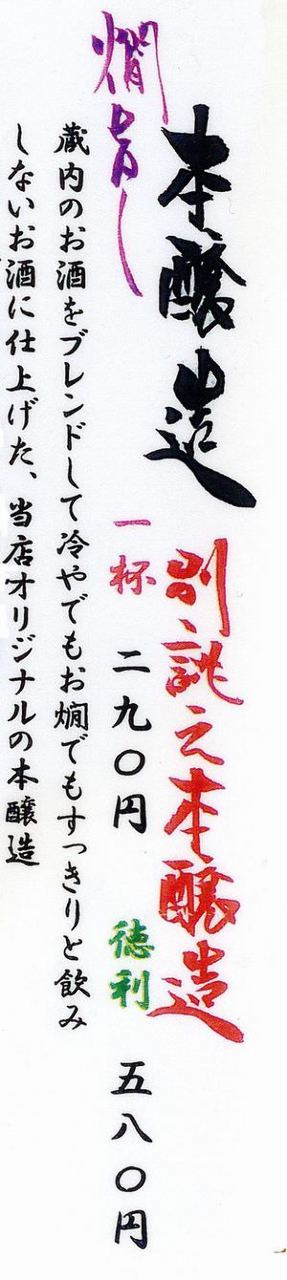 本醸造 別誂え本醸造
燗旨し
一杯 二九〇円 徳利 五八〇円
蔵内のお酒をブレンドして冷やでもお燗でもすっきりと飲み
しないお酒に仕上げた、当店オリジナルの本醸造